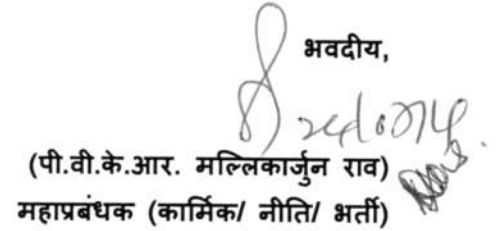 भवदीय,
(पी.वी.के.आर. मल्लिकार्जुन राव)
महाप्रबंधक (कार्मिक/ नीति/ भर्ती)